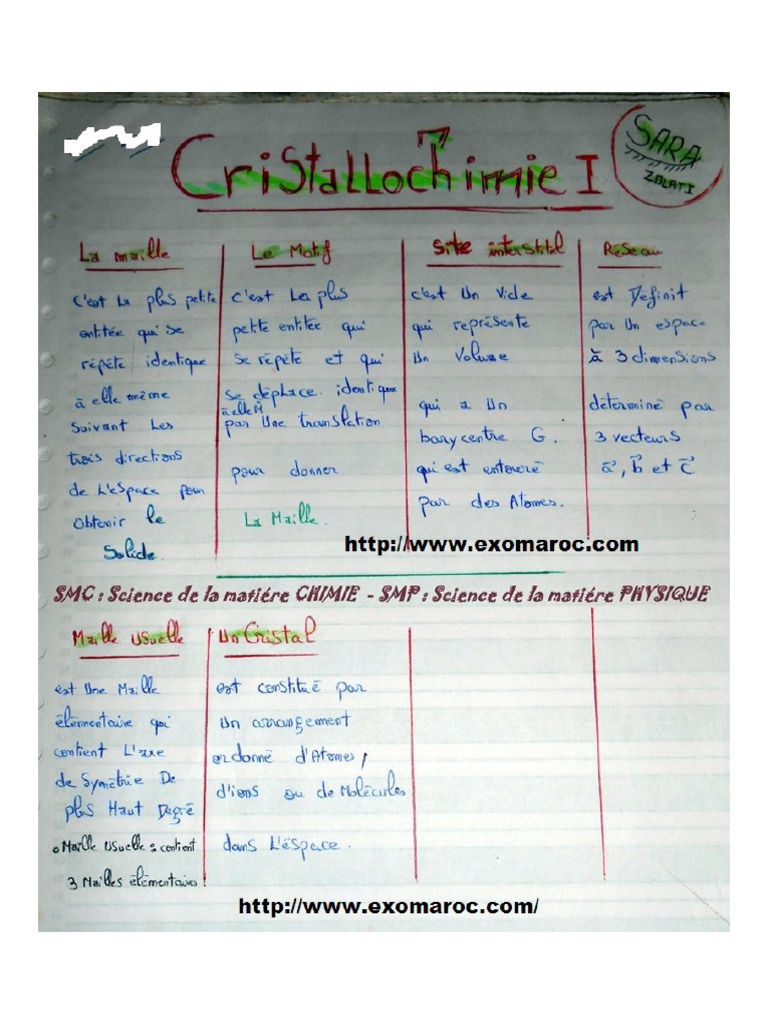 CristalloChimie I
SARA
ZOLATI
La maille
C'est La plus petite
entitée qui se
répéte identique
à elle même
Suivant Les
trois directions
de L'éspace pour
Obtenir le
Solide.
Le Motif
c'est Les plus
petite entitée qui
se répéte et qui
se déplace. identique
à elle M̂
par Une translation
pour donner
La Maille.
Site interstitiel
c'est Un Vide
qui représente
Un Volume
qui a Un
barycentre G.
qui est entouré
par des Atomes.
Réseau
est Définit
par Un espace
à 3 dimensions
déterminé par
3 vecteurs
a⃗, b⃗ et c⃗
http://www.exomaroc.com
SMC : Science de la matiére CHIMIE - SMP : Science de la matiére PHYSIQUE
Maille Usuelle
est Une Maille
élémentaire qui
contient L'axe
de Symétrie De
plus Haut Degré
o Maille Usuelle : contient
3 Mailles élémentaires
Un Cristal
est constitué par
Un arrangement
ordonné d'Atomes,
d'ions ou de Molécules
dans L'éspace.
http://www.exomaroc.com/